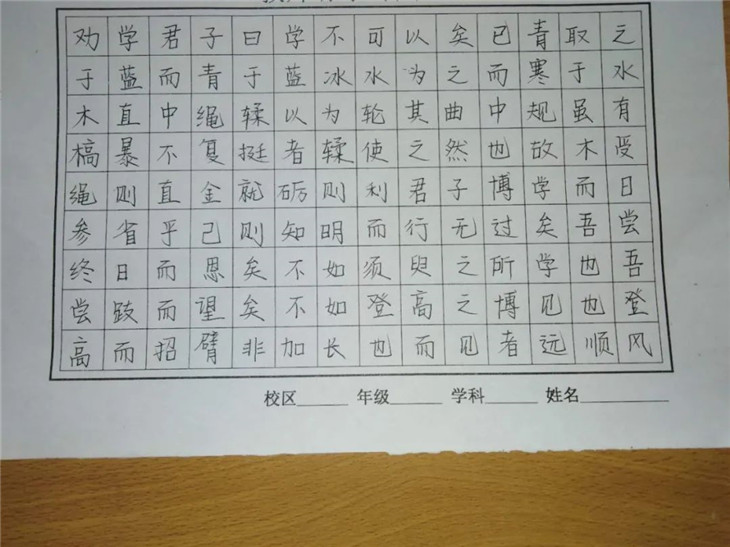 劝学君子曰学不可以矣已青取之
于蓝而青于蓝冰水为之而寒于水
木直中绳輮以为轮其曲中规虽有
槁暴不复挺者輮使之然也故木受
绳则直金就砺则利君子博学而日
参省乎己则知明而行无过矣吾尝
终日而思矣不如须臾之所学也吾
尝跂而望矣不如登高之博见也登
高而招臂非加长也而见者远顺风
校区 年级 学科 姓名